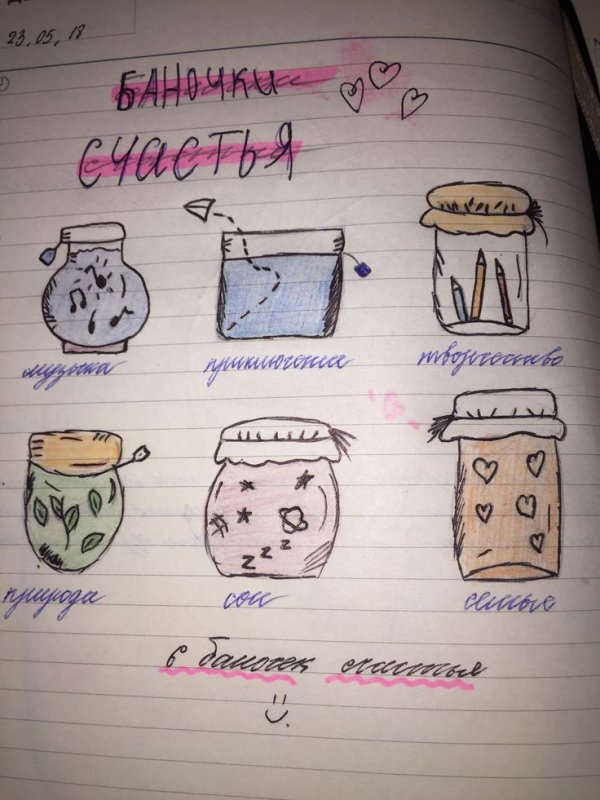 23.05.18
БАНОЧКИ
СЧАСТЬЯ
музыка
приключения
творчество
природа
z z z z
сон
семья
6 баночек счастья